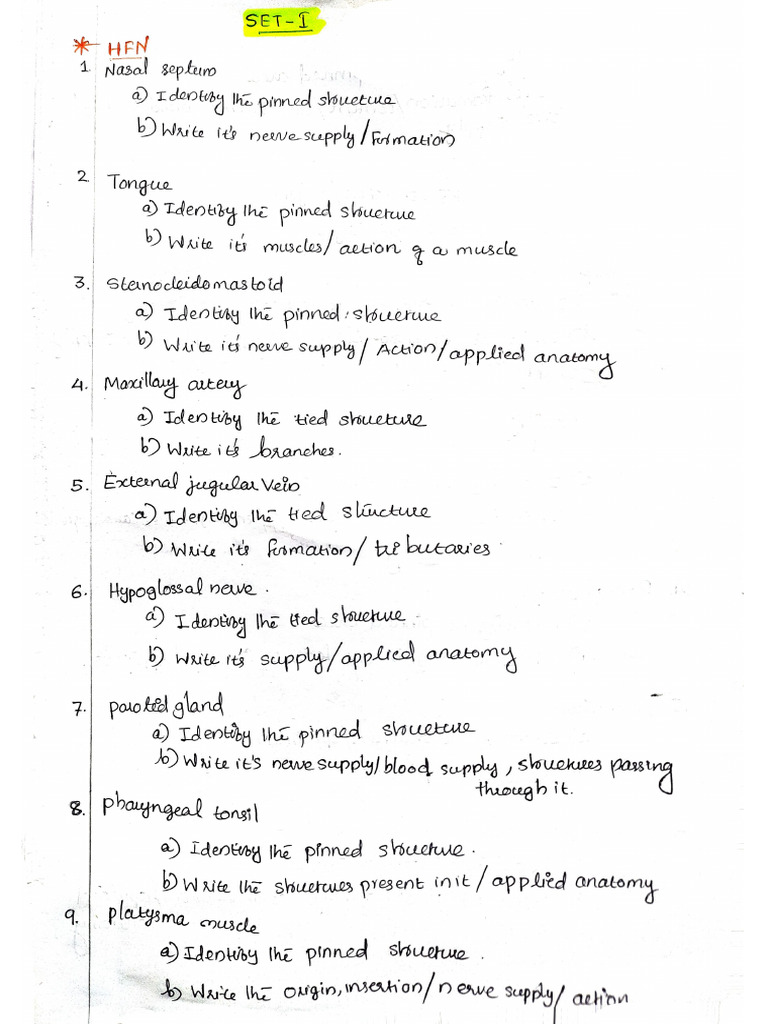 SET-I
* HFN
1. Nasal septum
a) Identify the pinned structure
b) Write it's nerve supply/Formation
2. Tongue
a) Identify the pinned structure
b) Write it's muscles/action of a muscle
3. Sternocleidomastoid
a) Identify the pinned structure
b) Write it's nerve supply/Action/applied anatomy
4. Maxillary artery
a) Identify the tied structure
b) Write it's branches.
5. External jugular vein
a) Identify the tied structure
b) Write it's formation/tributaries
6. Hypoglossal nerve.
a) Identify the tied structure
b) Write it's supply/applied anatomy
7. parotid gland
a) Identify the pinned structure
b) Write it's nerve supply/blood supply, structures passing
through it.
8. Pharyngeal tonsil
a) Identify the pinned structure.
b) Write the structures present in it/applied anatomy
9. Platysma muscle
a) Identify the pinned structure.
b) Write the origin, insertion/nerve supply/action